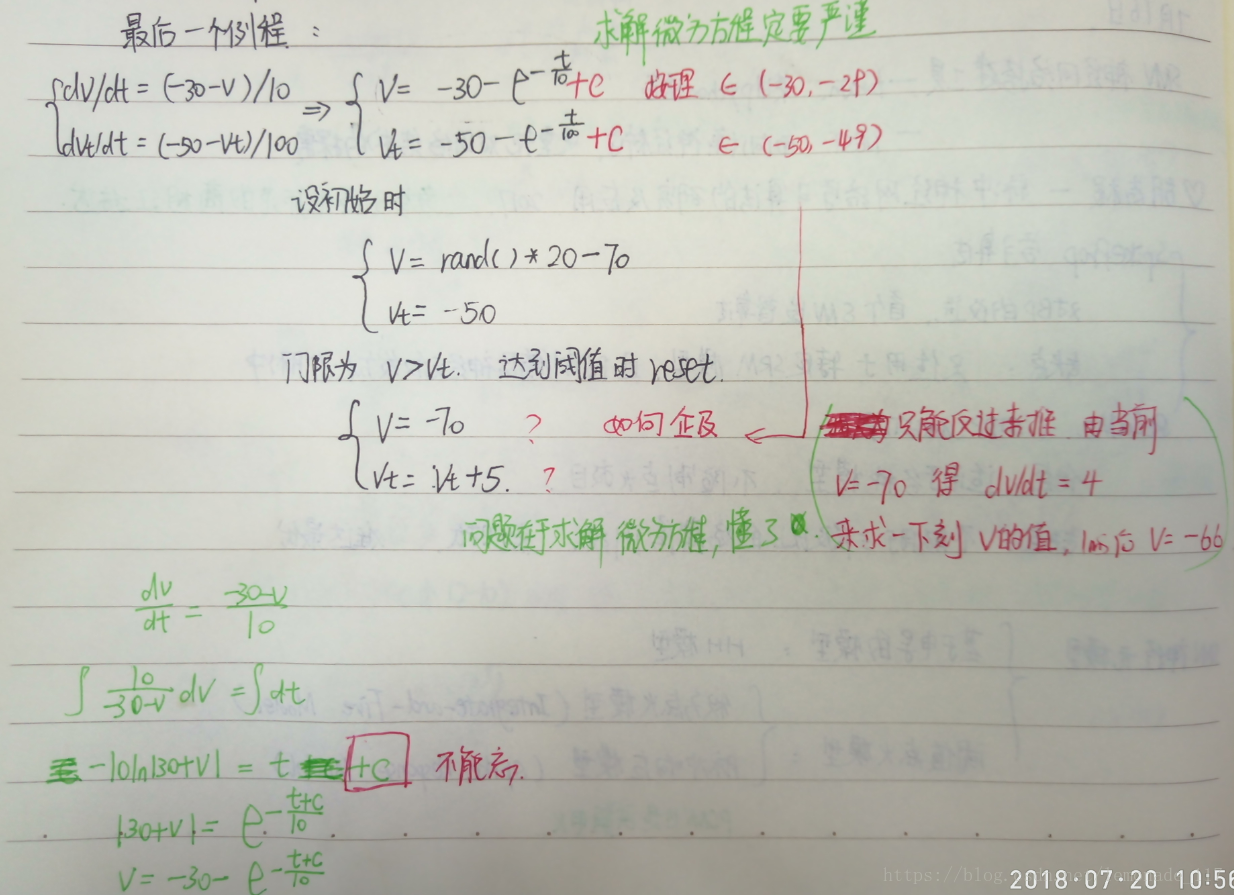 最后一个例程：
求解微分方程定要严谨
{ dv/dt = (-30-v)/10 ⇒ { V = -30 - e^{-t/10} + C 按理 ∈ (-30, -29)
{ dvt/dt = (-50-vt)/100 { Vt = -50 - e^{-t/100} + C ∈ (-50, -49)
设初始时
{ V = rand() * 20 - 70
{ Vt = -50
门限为 V > Vt. 达到阈值时 reset.
{ V = -70 ? 如何企及 ←
{ Vt = Vt + 5. ?
只能反过来推 由当前
V = -70 得 dv/dt = 4
来求一下刻 V的值, 1ms后 V = -66
问题在于求解微分方程, 懂了
dv/dt = (-30-v)/10
∫ 10/(-30-v) dv = ∫ dt
-10 ln|30+V| = t +C 不能忘.
|30+V| = e^{-(t+C)/10}
V = -30 - e^{-(t+C)/10}
https://blog.
2018·07·20 10:56